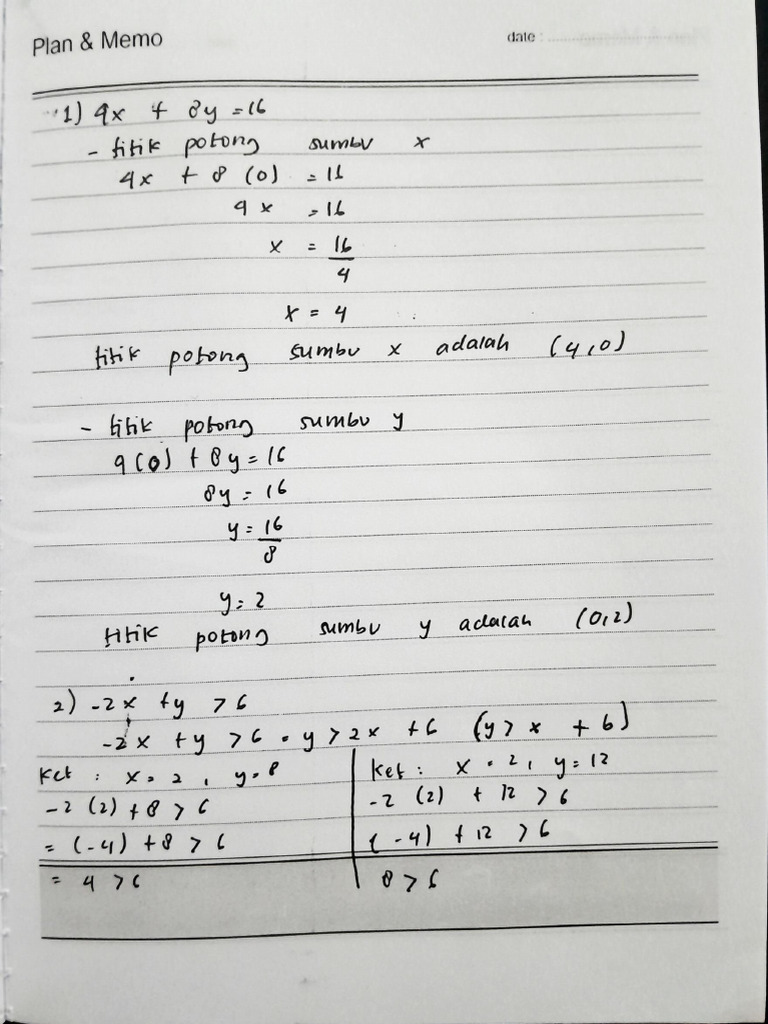 Plan & Memo
date :
1) 4x + 8y = 16
- titik potong sumbu x
4x + 8 (0) = 16
4x = 16
x = 16
4
x = 4
titik potong sumbu x adalah (4,0)
- titik potong sumbu y
4(0) + 8y = 16
8y = 16
y = 16
8
y = 2
titik potong sumbu y adalah (0,2)
2) -2x + y > 6
-2x + y > 6 = y > 2x + 6 (y > x + 6)
Ket : x = 2, y = 8
-2 (2) + 8 > 6
= (-4) + 8 > 6
= 4 > 6
Ket : x = 2, y = 12
-2 (2) + 12 > 6
(-4) + 12 > 6
8 > 6